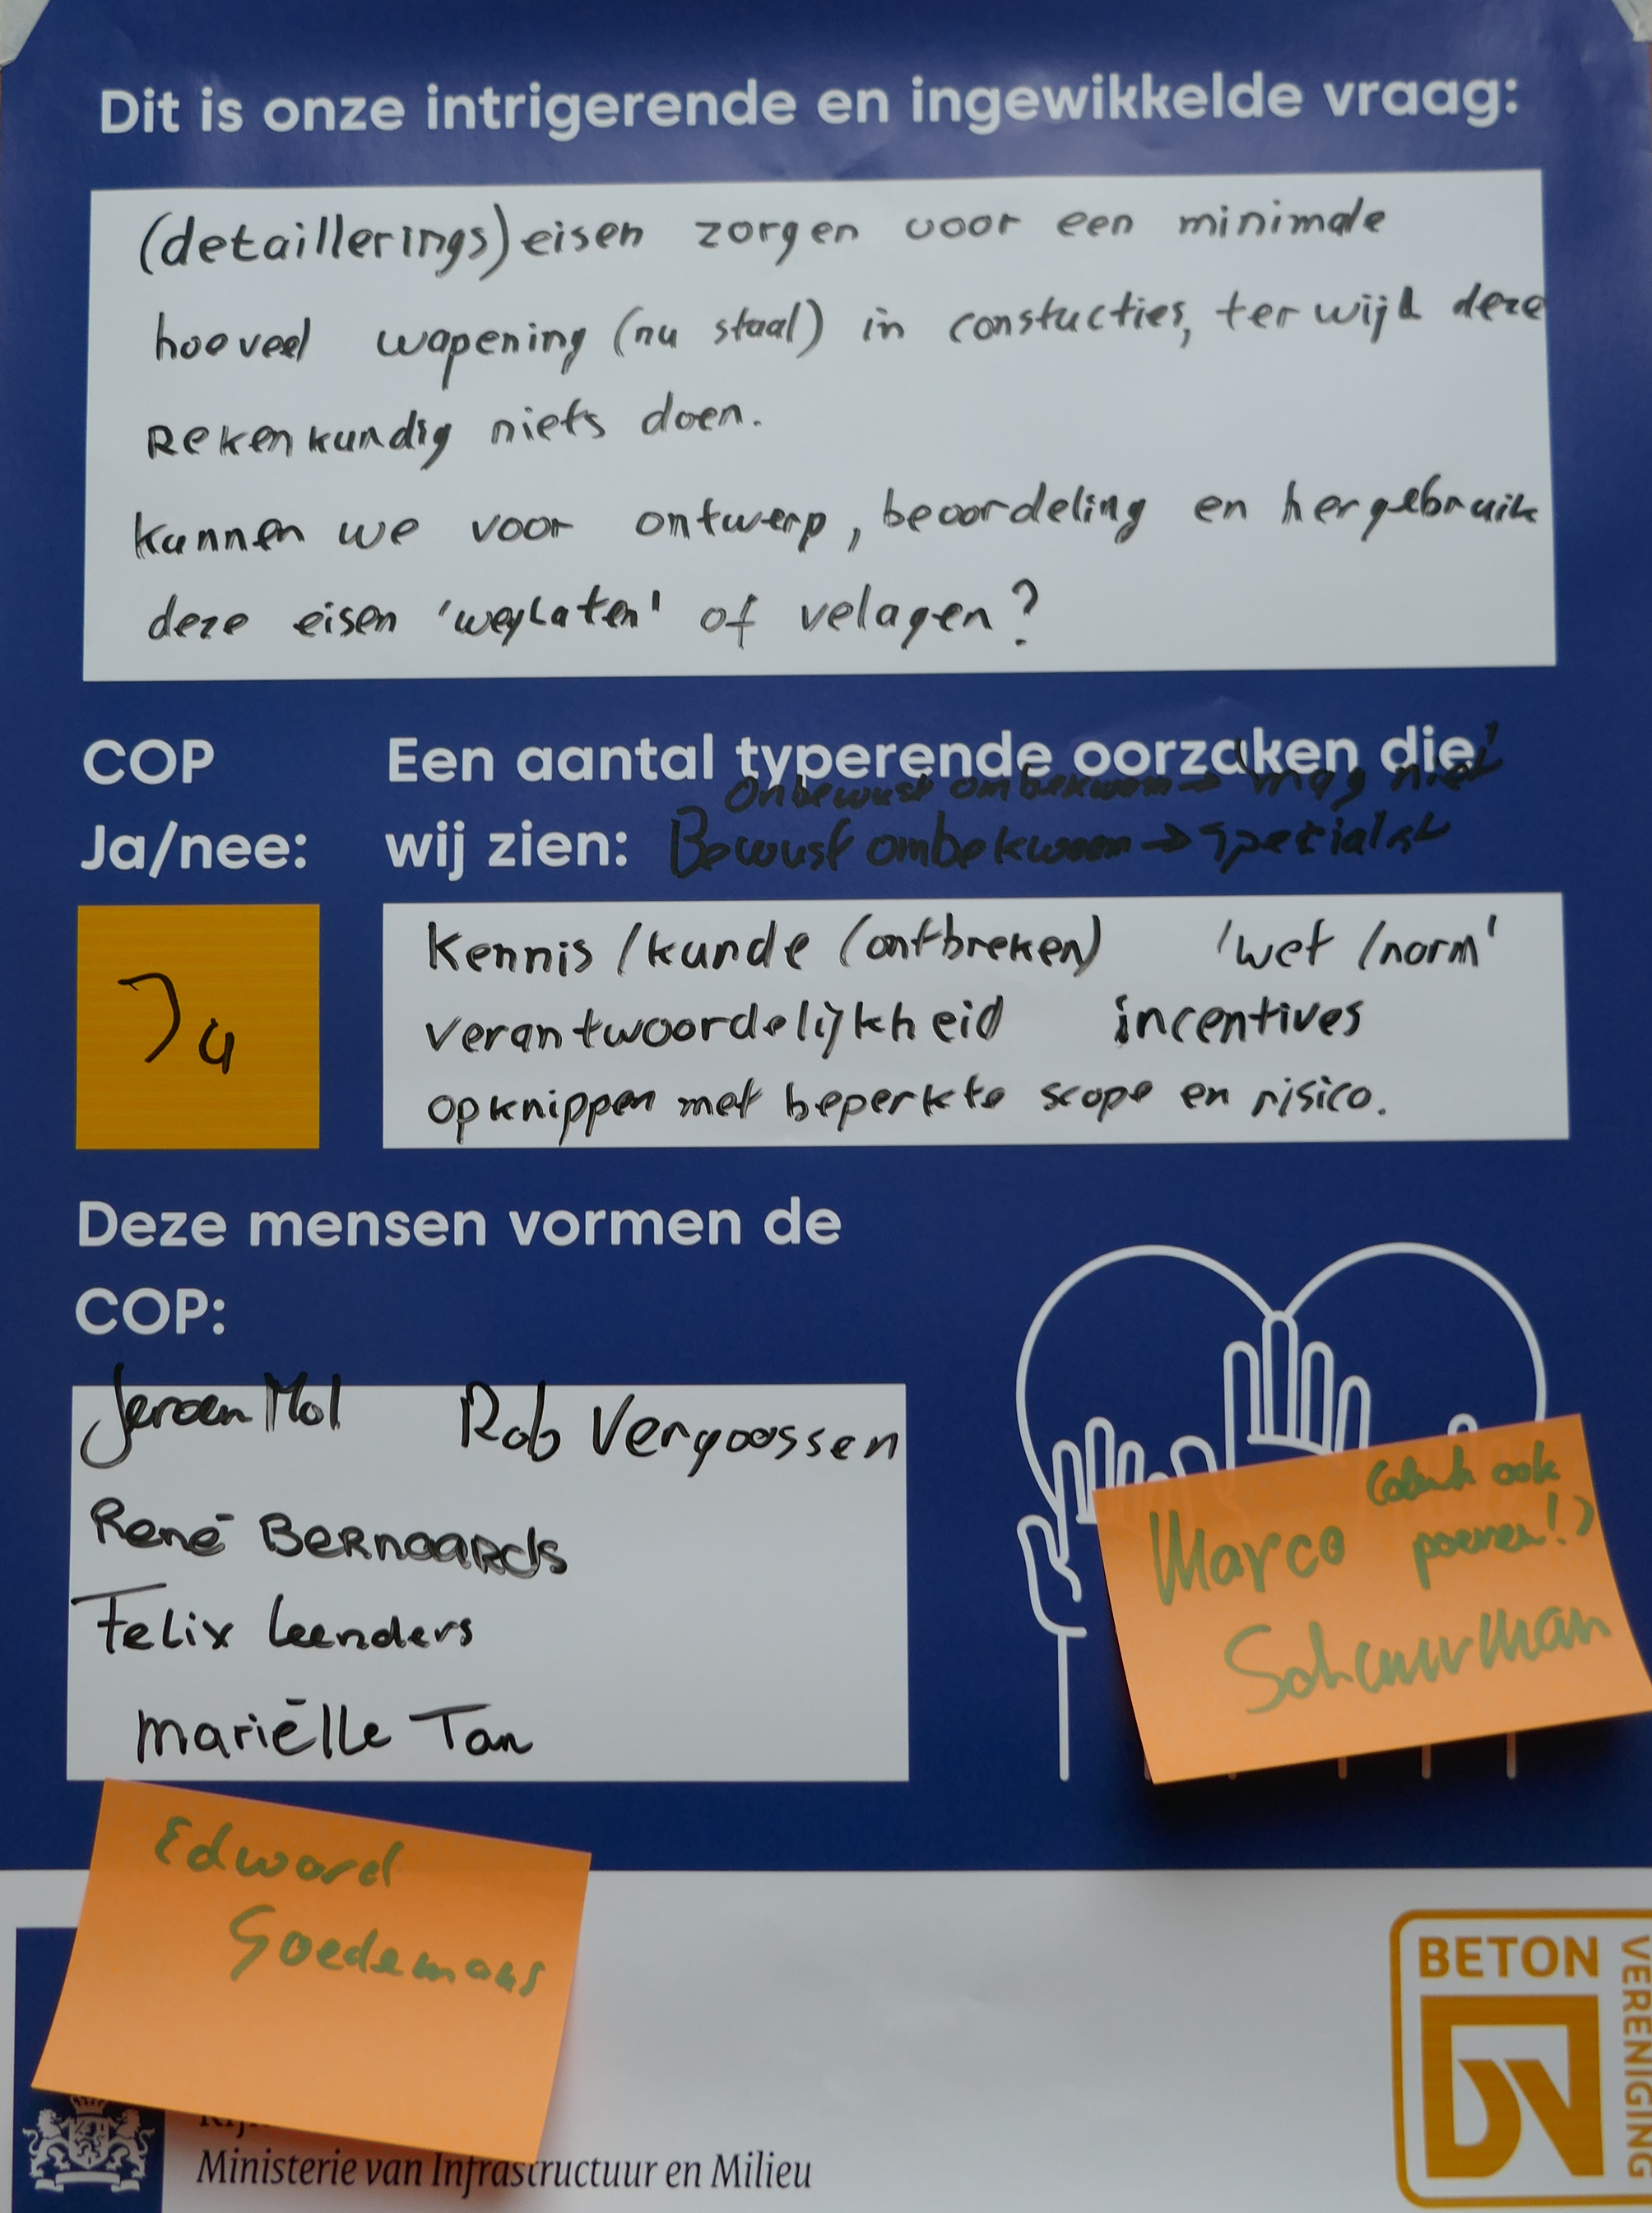 Dit is onze intrigerende en ingewikkelde vraag:
(detaillerings)eisen zorgen voor een minimale
hoeveel wapening (nu staal) in constucties, terwijl deze
Rekenkundig niets doen.
kunnen we voor ontwerp, beoordeling en hergebruik
deze eisen 'weglaten' of velagen?
COP
Ja/nee:
Een aantal typerende oorzaken die
wij zien:
Onbewust ombekwaam → 'mag niet'
Bewust ombekwaam → specialist
Ja
Kennis/kunde (ontbreken) 'wet/norm'
verantwoordelijkheid incentives
opknippen met beperkte scope en risico.
Deze mensen vormen de
COP:
Jeroen Mol Rob Vergoossen
René Bernaards
Felix Leenders
Mariëlle Tan
ook
Marco
Schuurman
Edward
Goedemans
Ministerie van Infrastructuur en Milieu
BETON
VERENIGING